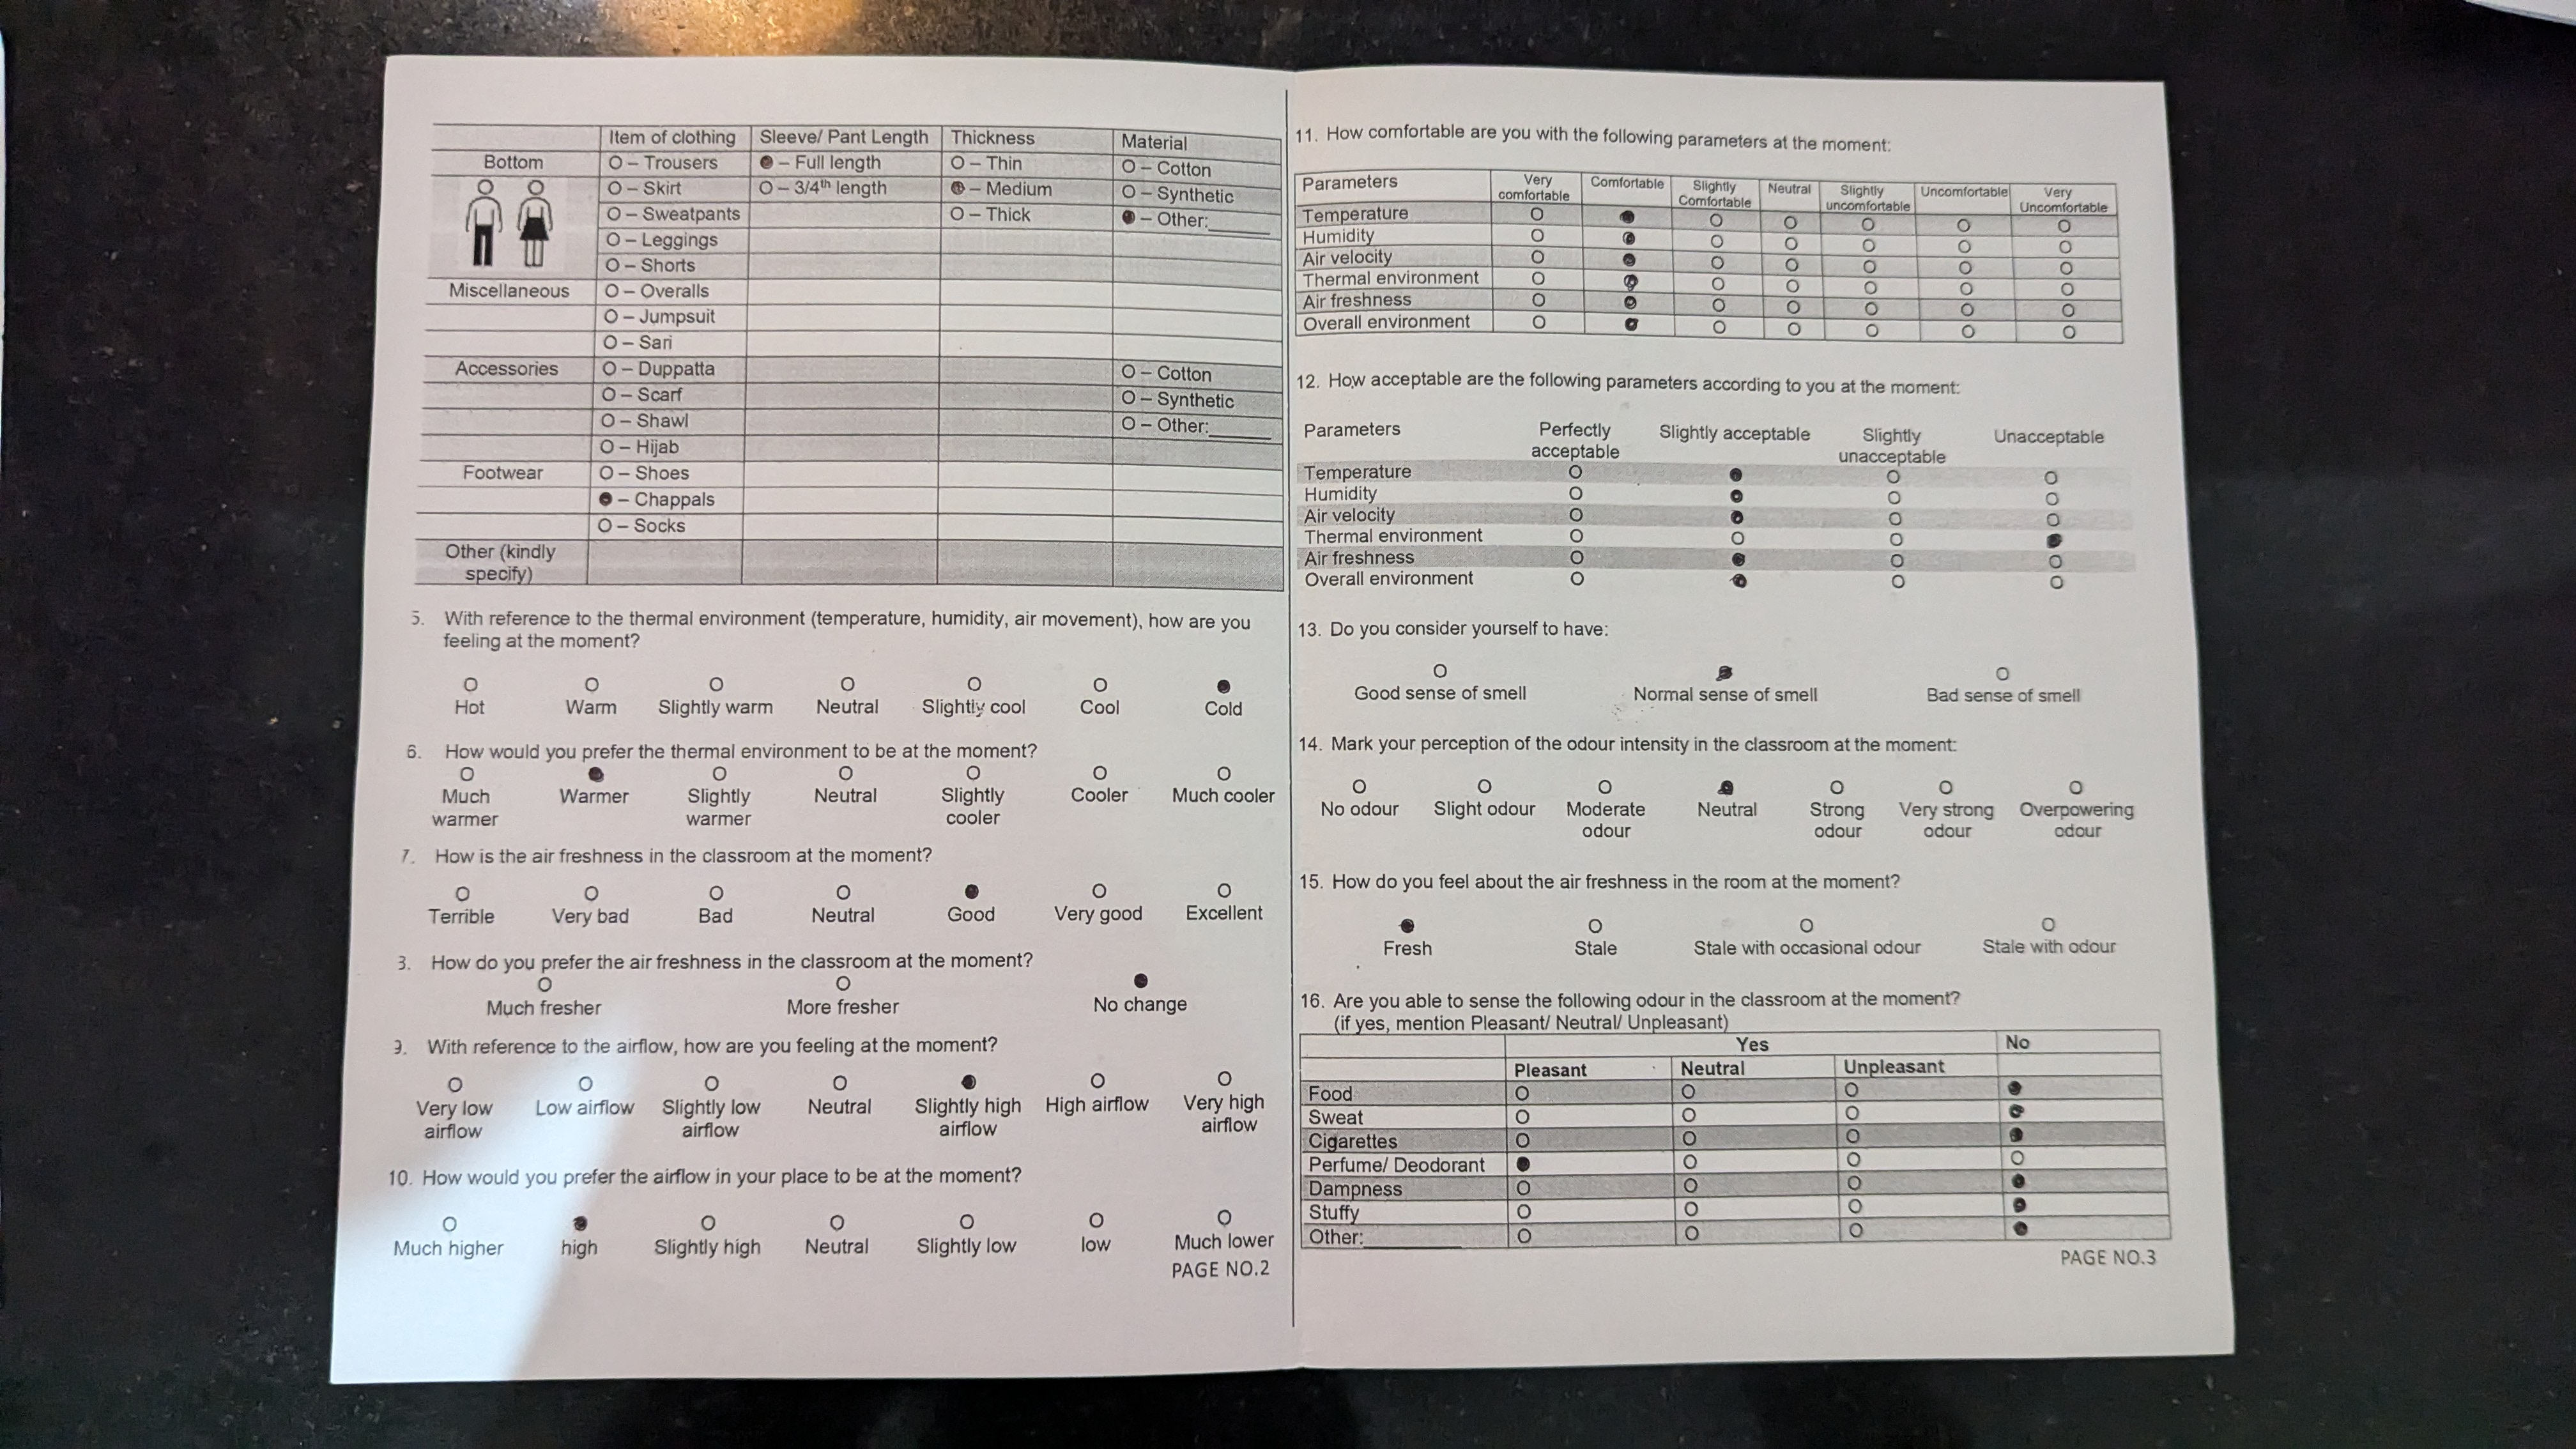 Item of clothing Sleeve/ Pant Length Thickness Material
Bottom O – Trousers ● – Full length O – Thin O – Cotton
O – Skirt O – 3/4th length ● – Medium O – Synthetic
O – Sweatpants O – Thick ● – Other:______
O – Leggings
O – Shorts
Miscellaneous O – Overalls
O – Jumpsuit
O – Sari
Accessories O – Duppatta O – Cotton
O – Scarf O – Synthetic
O – Shawl O – Other:______
O – Hijab
Footwear O – Shoes
● – Chappals
O – Socks
Other (kindly
specify)
5. With reference to the thermal environment (temperature, humidity, air movement), how are you
feeling at the moment?
O O O O O O ●
Hot Warm Slightly warm Neutral Slightly cool Cool Cold
6. How would you prefer the thermal environment to be at the moment?
O ● O O O O O
Much Warmer Slightly Neutral Slightly Cooler Much cooler
warmer warmer cooler
7. How is the air freshness in the classroom at the moment?
O O O O ● O O
Terrible Very bad Bad Neutral Good Very good Excellent
3. How do you prefer the air freshness in the classroom at the moment?
O O ●
Much fresher More fresher No change
9. With reference to the airflow, how are you feeling at the moment?
O O O O ● O O
Very low Low airflow Slightly low Neutral Slightly high High airflow Very high
airflow airflow airflow airflow
10. How would you prefer the airflow in your place to be at the moment?
O ● O O O O O
Much higher high Slightly high Neutral Slightly low low Much lower
PAGE NO.2
11. How comfortable are you with the following parameters at the moment:
Parameters Very Comfortable Slightly Neutral Slightly Uncomfortable Very
comfortable Comfortable uncomfortable Uncomfortable
Temperature O ● O O O O O
Humidity O ● O O O O O
Air velocity O ● O O O O O
Thermal environment O ● O O O O O
Air freshness O ● O O O O O
Overall environment O ● O O O O O
12. How acceptable are the following parameters according to you at the moment:
Parameters Perfectly Slightly acceptable Slightly Unacceptable
acceptable unacceptable
Temperature O ● O O
Humidity O ● O O
Air velocity O ● O O
Thermal environment O O O ●
Air freshness O ● O O
Overall environment O ● O O
13. Do you consider yourself to have:
O ● O
Good sense of smell Normal sense of smell Bad sense of smell
14. Mark your perception of the odour intensity in the classroom at the moment:
O O O ● O O O
No odour Slight odour Moderate Neutral Strong Very strong Overpowering
odour odour odour odour
15. How do you feel about the air freshness in the room at the moment?
● O O O
Fresh Stale Stale with occasional odour Stale with odour
16. Are you able to sense the following odour in the classroom at the moment?
(if yes, mention Pleasant/ Neutral/ Unpleasant)
Yes No
Pleasant Neutral Unpleasant
Food O O O ●
Sweat O O O ●
Cigarettes O O O ●
Perfume/ Deodorant ● O O O
Dampness O O O ●
Stuffy O O O ●
Other:_________ O O O ●
PAGE NO.3